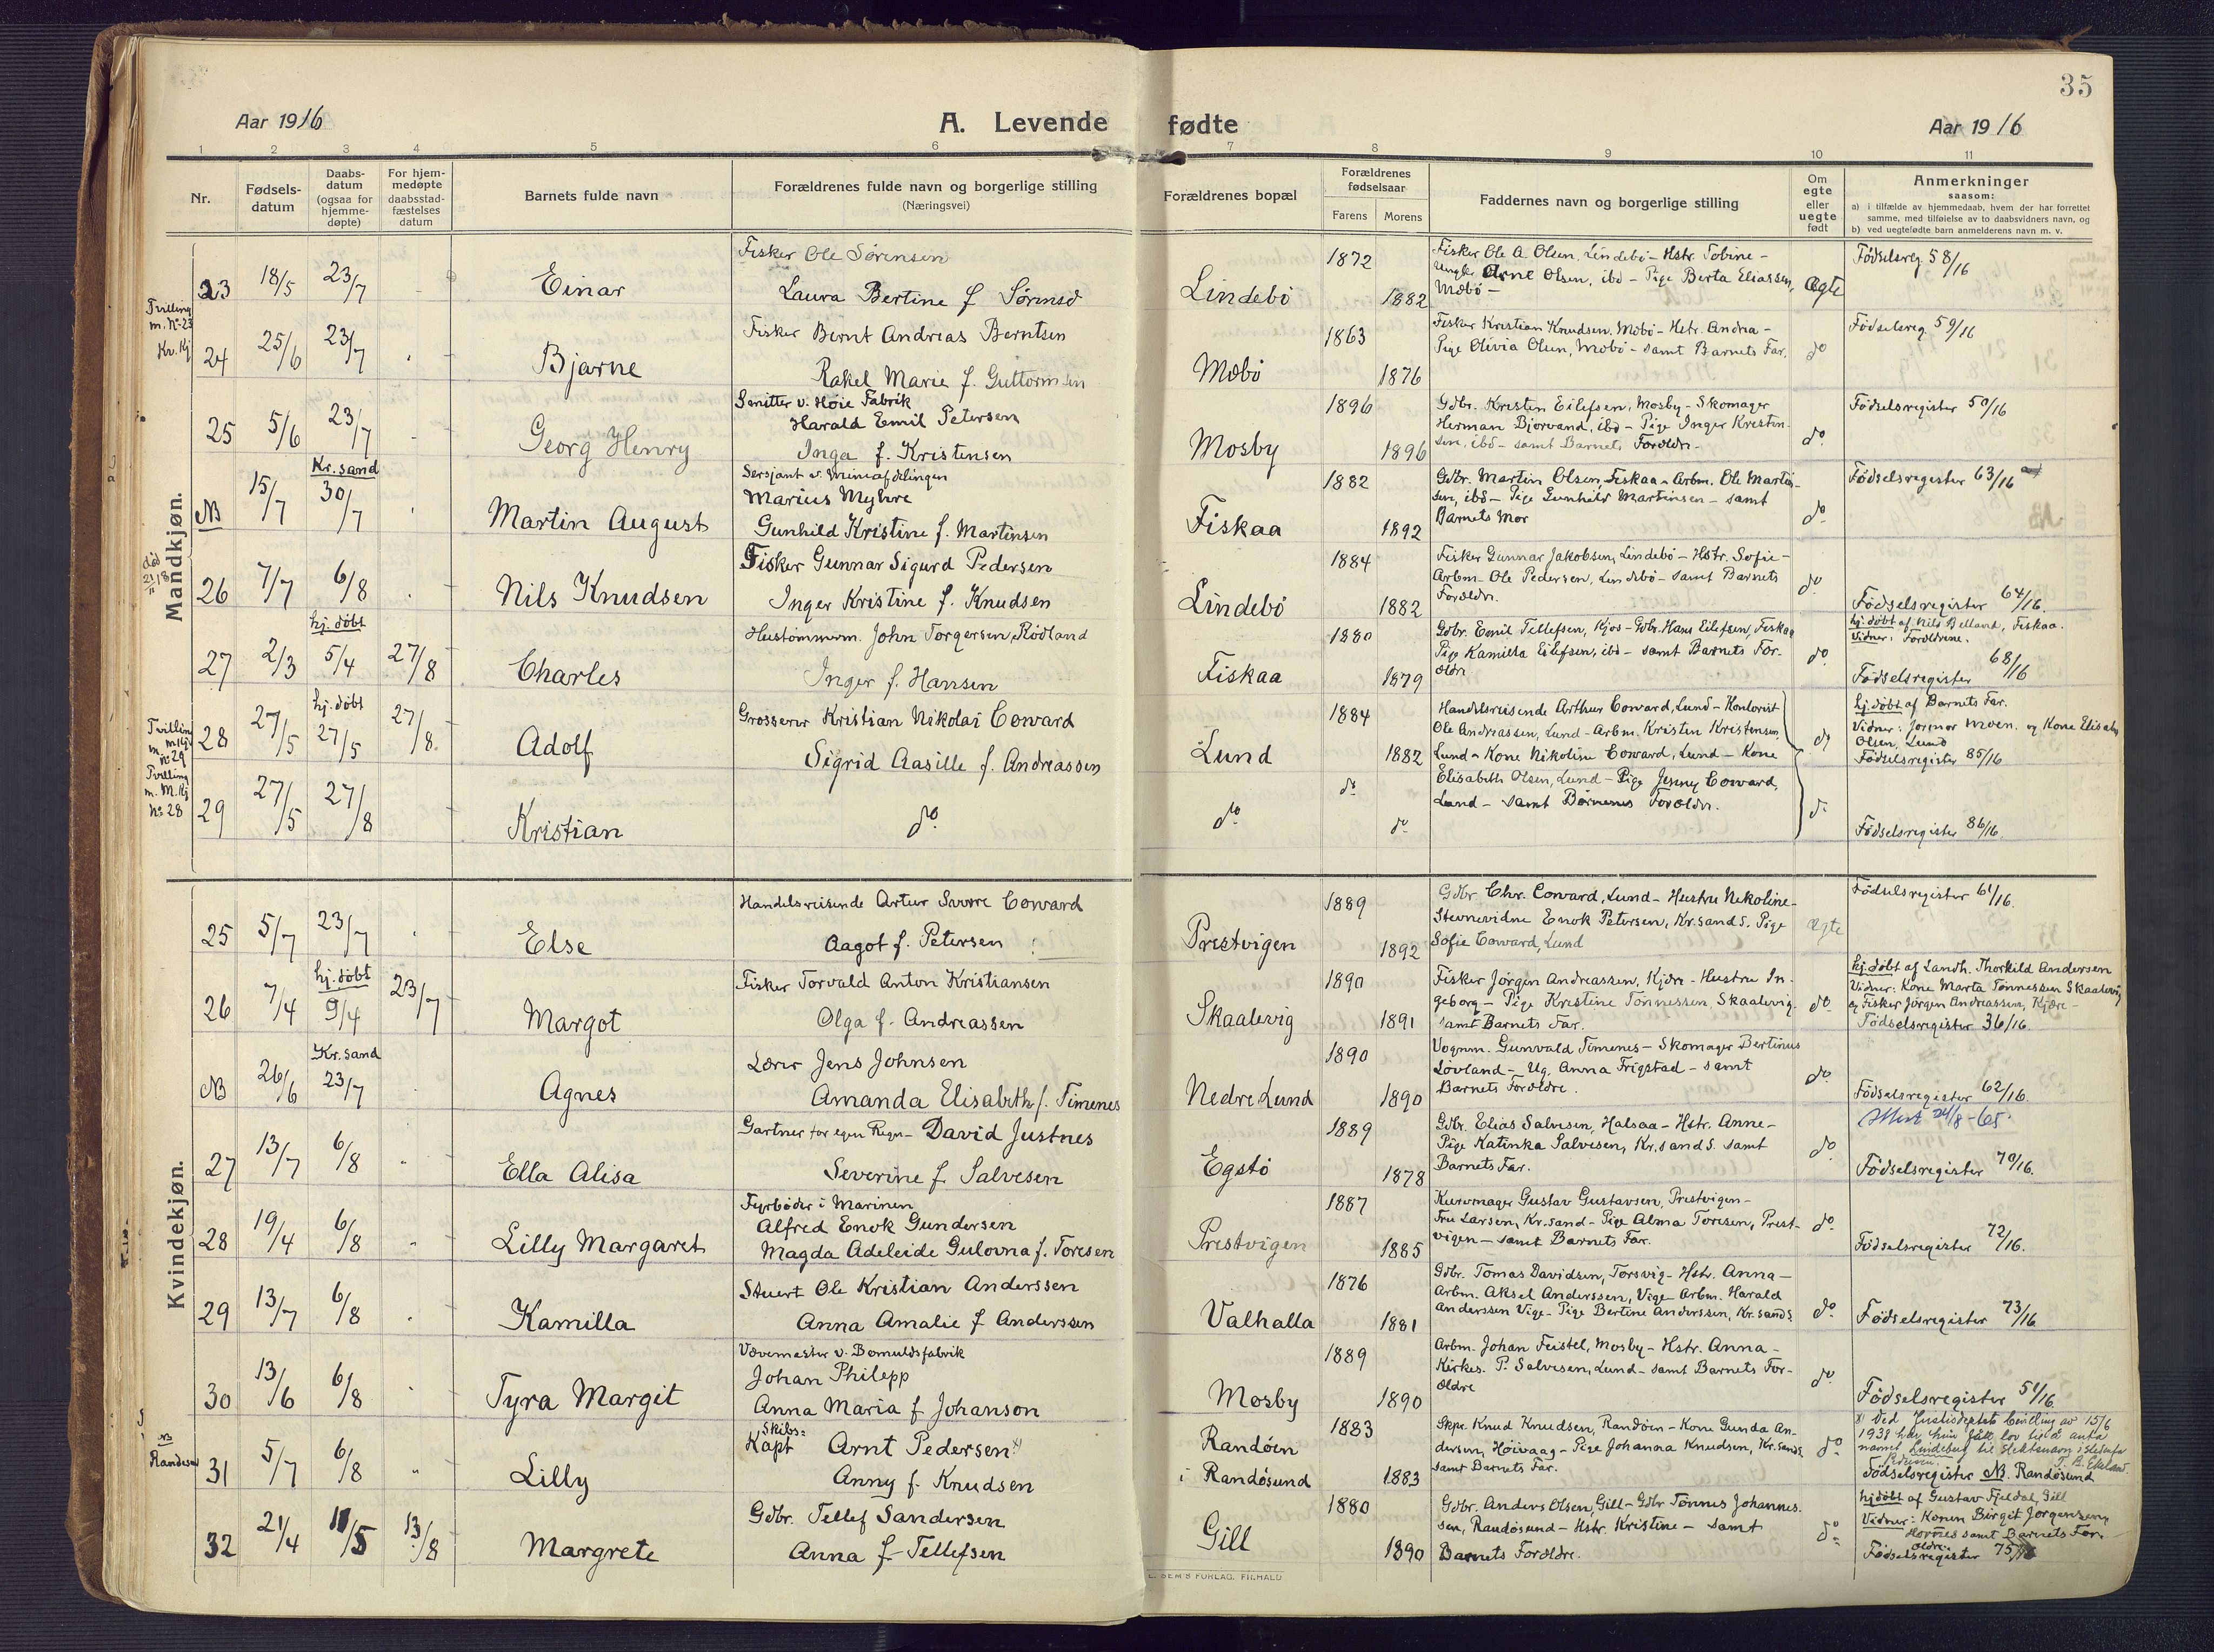 35
Aar 1916
A. Levende fødte
Aar 1916
1 2 3 4 5 6 7 8 9 10 11
Nr.
Fødsels-
datum
Daabs-
datum
(ogsaa for
hjemme-
døpte)
For hjem-
medøpte
daabsstad-
fæstelses
datum
Barnets fulde navn
Forældrenes fulde navn og borgerlige stilling
(Næringsvei)
Forældrenes bopæl
Forældrenes
fødselsaar
Farens Morens
Faddernes navn og borgerlige stilling
Om
egte
eller
uegte
født
Anmerkninger
saasom:
a) i tilfælde av hjemmedaab, hvem der har forrettet
samme, med tilføielse av to daabsvidners navn, og
b) ved uegtefødte barn anmelderens navn m. v.
Mandkjøn.
23 18/5 23/7 - Einar
Fisker Ole Sørensen
Laura Bertine f. Sørensd
Lindebö 1872 1882
Fisker Ole A Olsen, Lindebö - Hstr. Tobine -
Ungk. Arne Olsen, ibd - Pige Berta Eliassen,
Mæbö -
Ægte
Fødselsreg. 58/16
Tvilling
m. No 23
Kv. Kj
24 25/6 23/7 Bjarne
Fisker Bernt Andreas Berntsen
Rakel Marie f. Guttormsen
Mæbö 1863 1876
Fisker Kristian Knudsen, Mæbö - Hstr. Andrea -
Pige Olivia Olsen, Mæbö - samt Barnets Far.
do
Fødselsreg. 59/16
25 5/6 23/7 - Georg Henry
Smitter v. Höie Fabrik
Harald Emil Petersen
Inga f. Kristensen
Mosby 1896 1896
Gdbr. Kristen Eilefsen, Mosby - Skomager
Herman Bjorvand, ibd - Pige Inger Kristen-
sen, ibd - samt Barnets Forældre -
do
Fødselsregister 50/16
NB 15/7 Kr.sand 30/7 Martin August
Sersjant v. Mineafdelingen
Marius Myhre
Gunhild Kristine f. Martinsen
Fiskaa 1882 1892
Gdbr. Martin Olsen, Fiskaa - Arbm. Ole Martin-
sen, ibd - Pige Gunhild Martinsen - samt
Barnets Mor
do
Fødselsregister 63/16
26 7/7 6/8 Nils Knudsen
Fisker Gunnar Sigurd Pedersen
Inger Kristine f. Knudsen
Lindebö 1884 1882
Fisker Gunnar Jakobsen, Lindebö - Hstr. Sofie -
Arbm - Ole Pedersen, Lindebö - samt Barnets
Forældre.
do
Fødselsregister 64/16.
27 2/3 hj. döbt 5/4 27/8 Charles
Hustømmerm. John Torgersen Rödland
Inger f. Hansen
Fiskaa 1880 1879
Gdbr. Emil Tellefsen, Kjos - Gdbr. Hans Eilefsen, Fiskaa
Pige Kamilla Eilefsen, ibd - samt Barnets For-
ældre
do
hj. döbt af Nils Belland, Fiskaa.
Vidner: Forældrene.
Fødselsregister 68/16
Tvilling
m. M.Kj
No 29
28 27/5 hj. döbt 27/5 27/8. Adolf
Grosserer Kristian Nikolai Coward
Sigrid Aasille f. Andreassen
Lund 1884 1882
Handelsreisende Arthur Coward, Lund - Kontorist
Ole Andreassen, Lund - Arbm. Kristen Kristensen
Lund - Kone Nikoline Coward, Lund - Kone
Elisabeth Olsen, Lund - Pige Jenny Coward,
Lund - samt Børnenes Forældre.
do
hj. döbt af Barnets Far.
Vidner: Jormor Moen og Kone Elisabeth
Olsen, Lund
Fødselsregister 85/16
Tvilling
m. M. Kj
No 28
29 27/5 27/8 Kristian
do do do do do
Fødselsregister 86/16.
Kvindekjøn.
25 5/7 23/7 Else
Handelsreisende Artur Sverre Coward
Aagot f. Petersen
Prestvigen 1889 1892
Gdbr Chr. Coward, Lund - Hustru Nikoline -
Stevnevidne Enok Petersen, Kr.sand S. Pige
Sofie Coward, Lund
Ægte
Fødselsregister 61/16.
26 7/4 hj. döbt 9/4 23/7 Margot
Fisker Torvald Anton Kristiansen
Olga f. Andreassen
Skaalevig 1890 1891
Fisker Jörgen Andreassen, Kjære - Hustru In-
geborg - Pige Kristine Tönnessen, Skaalevig.
samt Barnets Far.
do
hj. döbt af Landh. Thorkild Andersen
Vidner: Kone Marta Tönnessen Skaalevig
og Fisker Jörgen Andreassen, Kjære -
Fødselsregister 36/16.
NB 26/6 Kr. sand 23/7 Agnes
Lærer Jens Johnsen
Amanda Elisabeth f. Timenes
Nedre Lund 1890 1890
Vognm. Gunvald Timenes - Skomager Bertinus
Lövland - Ug. Anna Frigstad - samt
Barnets Forældre.
do
Fødselsregister 62/16.
27 13/7 6/8 Ella Alisa
Gartner for egen Regn - David Justnes
Severine f. Salvesen
Egstö 1889 1878
Gdbr. Elias Salvesen, Halsaa - Hstr. Anne -
Pige Katinka Salvesen, Kr.sand S. samt
Barnets Far.
do
24/8-65.
Fødselsregister 70/16.
28 19/4 6/8 Lilly Margaret
Fyrböder i Marinen
Alfred Enok Gundersen
Magda Adeleide Gulovna f. Toresen
Prestvigen 1887 1885
Kurvmager Gustav Gustavsen, Prestvigen -
Fru Larsen, Kr.sand - Pige Alma Toresen, Prest-
vigen - samt Barnets Far.
do
Fødselsregister 72/16.
29 13/7 6/8 Kamilla
Stuert Ole Kristian Anderssen
Anna Amalie f. Anderssen
Valhalla 1876 1881
Gdbr. Tomas Davidsen, Torsvig - Hstr. Anna -
Arbm. Aksel Anderssen, Vige - Arbm. Harald
Anderssen Vige - Pige Bertine Anderssen, Kr.sand S
do
Fødselsregister 73/16
30 13/6 6/8 Tyra Margit
Vævemester v. Bomuldsfabrik
Johan Philepp
Anna Maria f. Johanson
Mosby 1889 1890
Arbm. Johan Feistel, Mosby - Hstr. Anna -
Kirkes. P. Salvesen, Lund - samt Barnets For-
ældre
do
Fødselsregister 51/16
NB
Randøsund
31 5/7 6/8 Lilly
Skibs=
Kapt Arnt Pedersen x)
Anny f. Knudsen
Randöen
i Randösund 1883 1883
Skpr. Knud Knudsen, Randöen - Kone Gunda An-
dersen, Höivaag - Pige Johanna Knudsen, Kr.sand S
samt Barnets Far.
do
x) Ved Justisdeptets bevilling av 15/6
1938 har hun fått lov til å anta
navnet Lindeberg til slektsnavn istedenfor
Pedersen.
Fødselsregister NB. Randösund
32 21/4 11/5 13/8 Margrete
Gdbr. Tellef Sandersen
Anna f. Tellefsen
Gill 1880 1890
Gdbr. Anders Olsen, Gill - Gdbr Tönnes Johannes-
sen, Randösund - Hstr. Kristine - samt
Barnets Forældre.
do
hj döbt af Gustav Fjeldal, Gill
Vidner: Konen Birgit Jörgensen,
Hovnes samt Barnets For-
ældre.
Fødselsregister 75/16